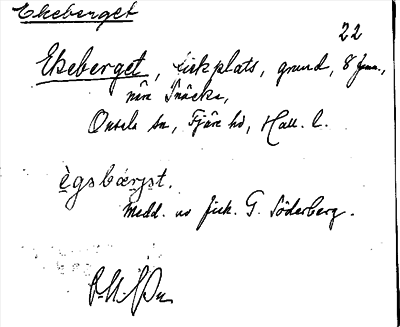 Ekeberget
22
Ekeberget, fiskplats, grund, 8 famn.,
nära Snäcke,
Onsala sn, Fjäre hd, Hall. l.
ègsbærjət.
Medd. av fisk. G. Söderberg.